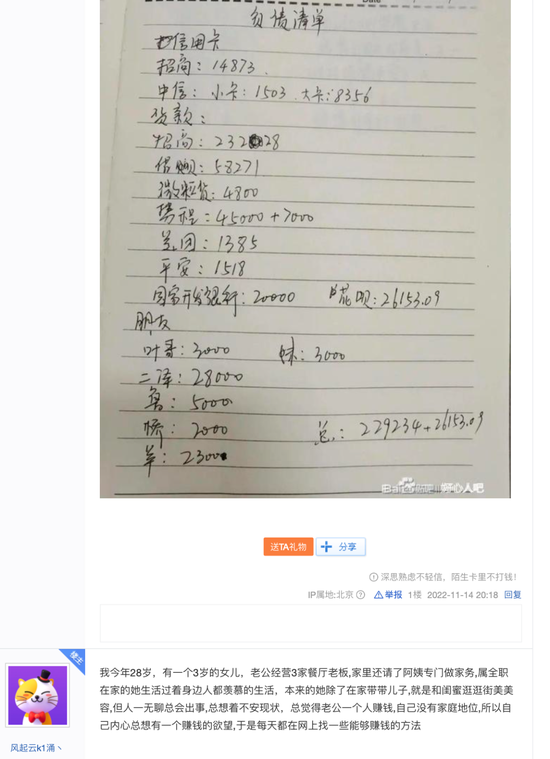 负债清单
信用卡
招商：14873
中信：小卡：1503 大卡：8356
贷款：
招商：232 28
借呗：58271
微粒贷：4800
携程：45000+7000
美团：1385
平安：1518
国家开发银行：20000 花呗：26153.09
朋友
叶哥：3000 妹：3000
二泽：28000
鲁：5000
桥：2000 总：229234+26153.09
羊：2300
送TA礼物
分享
深思熟虑不轻信，陌生卡里不打钱！
IP属地:北京 举报 1楼 2022-11-14 20:18 回复
楼主
我今年28岁，有一个3岁的女儿，老公经营3家餐厅老板,家里还请了阿姨专门做家务,属全职
在家的她生活过着身边人都羡慕的生活，本来的她除了在家带带儿子,就是和闺蜜逛逛街美美
容,但人一无聊总会出事,总想着不安现状，总觉得老公一个人赚钱,自己没有家庭地位,所以自
己内心总想有一个赚钱的欲望,于是每天都在网上找一些能够赚钱的方法
风起云k1涌丶